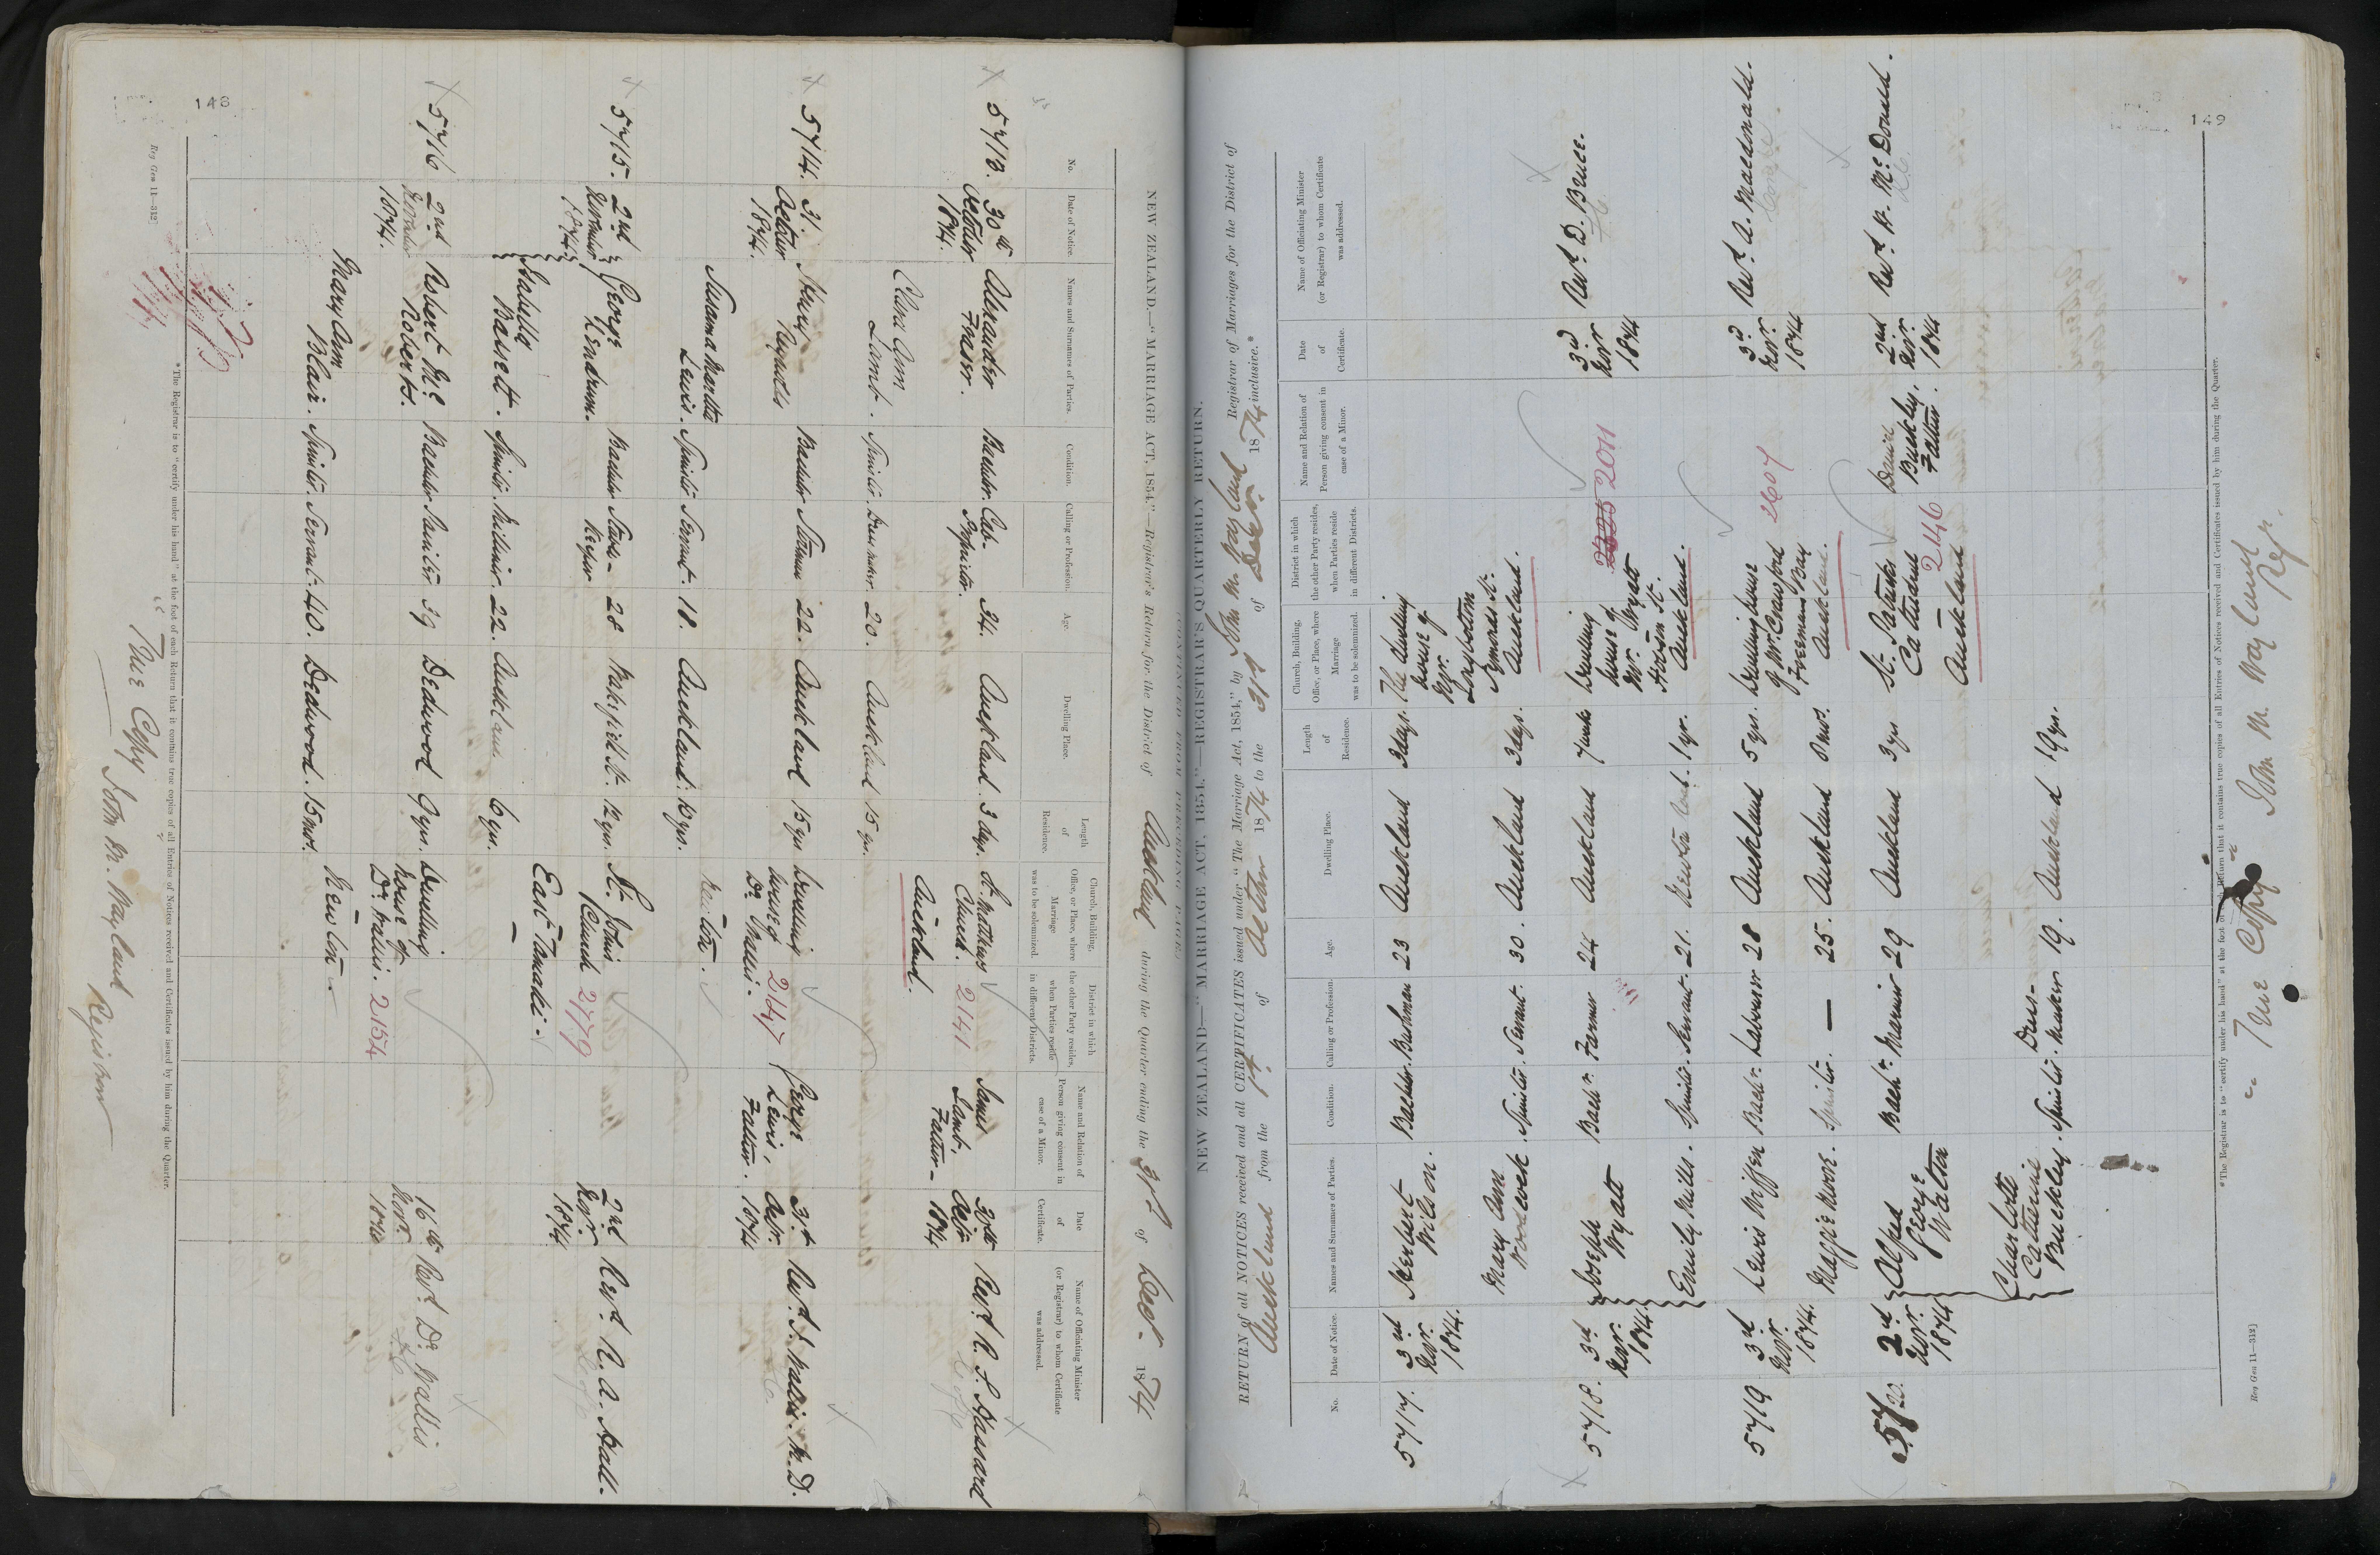 148
NEW ZEALAND.—"MARRIAGE ACT, 1854."—Registrar's Return for the District of Auckland during the Quarter ending the 31st of Decr. 1874
No.
Date of Notice.
Names and Surnames of Parties.
Condition.
Calling or Profession.
Age.
Dwelling Place.
Length of Residence.
Church, Building, Office, or Place, where Marriage was to be solemnized.
District in which the other Party resides, when Parties reside in different Districts.
Name and Relation of Person giving consent in case of a Minor.
Date of Certificate.
Name of Officiating Minister (or Registrar) to whom Certificate was addressed.
5713. 30th October 1874. Alexander Fraser. Bachelor. Cab-Proprietor. 34. Auckland. 3 days. St. Matthews Church. Auckland. 2141 James Lamb, Father— 30th Octr 1874 Revd. R. S. Hassard
Clara Ann Lamb. Spinster. Dressmaker. 20. Auckland 15 yrs.
5714. 31. October 1874. Henry Reynolds Bachelor 22. Auckland 15 yrs Dwelling house of Dr. Wallis. Newton. 2147 George Lewis, Father. 31st Octr. 1874 Revd. J. Wallis. M.D.
Susanna Martha Lewis. Spinster Servant. 18. Auckland. 10 yrs.
5715. 2nd November 1874. George Lendrum. Bachelor Store-keeper 28 Wakefield St. 12 yrs. St. Johns Church East Tamaki— 2779 2nd Novr. 1874 Revd. R. A. Hall.
Isabella Bassett. Spinster. Milliner. 22. Auckland. 6 yrs.
5716 2nd November 1874. Robert Mc. Roberts. Bachelor 39 Dedwood 9 yrs. Dwelling House of Dr. Wallis. Newton. 2154 16th Novr. 1874 Revd. Dr. Wallis
Mary Ann Blair. Spinster. Servant. 40. Dedwood. 15 mos.
*The Registrar is to "certify under his hand" at the foot of each Return that it contains true copies of all Entries of Notices received and Certificates issued by him during the Quarter.
Reg Gen 11—312]
True Copy John M. Wayland Registrar
149
NEW ZEALAND.—"MARRIAGE ACT, 1854."—REGISTRAR'S QUARTERLY RETURN.
RETURN of all NOTICES received and all CERTIFICATES issued under "The Marriage Act, 1854," by John M. Wayland Registrar of Marriages for the District of
Auckland from the 1st of October 1874 to the 31st of Decr. 1874 inclusive.*
No.
Date of Notice.
Names and Surnames of Parties.
Condition.
Calling or Profession.
Age.
Dwelling Place.
Length of Residence.
Church, Building, Office, or Place, where Marriage was to be solemnized.
District in which the other Party resides, when Parties reside in different Districts.
Name and Relation of Person giving consent in case of a Minor.
Date of Certificate.
Name of Officiating Minister (or Registrar) to whom Certificate was addressed.
5717. 3rd Novr. 1874. Herbert Wilson. Bachelor. Bushman 23 Auckland 3 days. The dwelling house of Mr. Longbottom Symonds St. Auckland.
Mary Ann Woodcock. Spinster. Servant. 30. Auckland 3 days.
5718. 3rd Novr. 1874. Joseph Wyatt Bachr. Farmer 24 Auckland 7 weeks Dwelling house of Mr. Wyatt Hobson St. Auckland. 2011 3rd Novr 1874 Revd. D. Bruce.
Emily Mills. Spinster. Servant. 21. Newton 1 yr.
5719 3rd Novr. 1874. Lewis Wiffen Bachr. Labourer 28 Auckland 5 yrs. Dwelling house of Mr. Crawford Freemans Bay Auckland. 2607 3rd Novr. 1874 Revd. A. Macdonald.
Maggie Moore. Spinster. — 25. Auckland 8 mos.
5720. 2nd Novr. 1874 Alfred George Walton Bachr. Mariner 29 Auckland 3 yrs St. Patricks Cathedral Auckland 2146 Daniel Buckley, Father. 2nd Novr. 1874 Revd. H. McDonald.
Charlotte Catherine Buckley. Spinster. Dress-maker 19. Auckland 19 yrs.
*The Registrar is to "certify under his hand" at the foot of each Return that it contains true copies of all Entries of Notices received and Certificates issued by him during the Quarter.
Reg Gen 11—312)
True Copy John M. Wayland Regr.